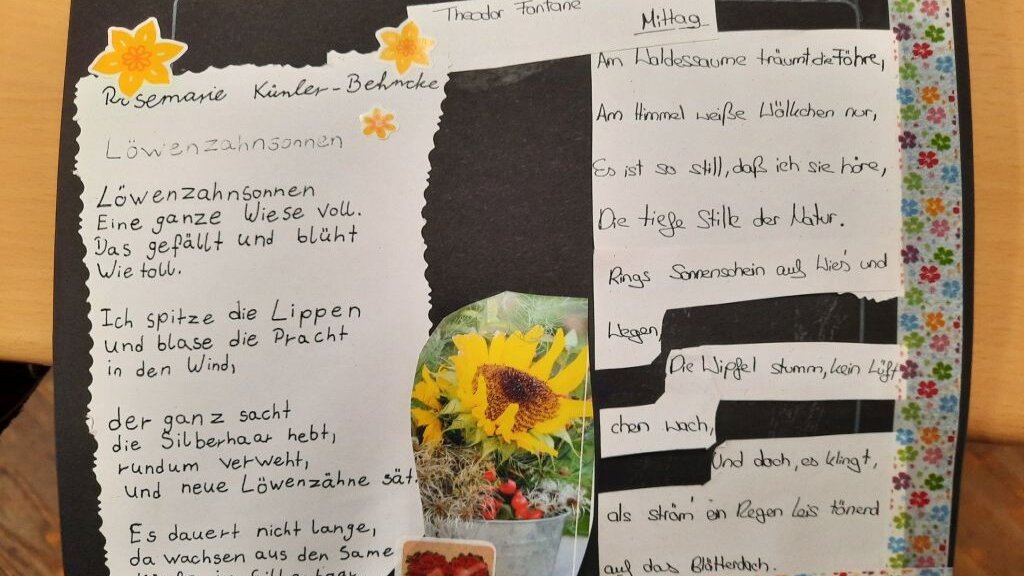 Rosemarie Künler-Behncke
Löwenzahnsonnen
Löwenzahnsonnen
Eine ganze Wiese voll.
Das gefällt und blüht
Wie toll.
Ich spitze die Lippen
und blase die Pracht
in den Wind,
der ganz sacht
die Silberhaar hebt,
rundum verweht,
und neue Löwenzähne sät.
Es dauert nicht lange,
da wachsen aus den Same
Theodor Fontane
Mittag
Am Waldessaume träumt die Föhre,
Am Himmel weiße Wölkchen nur,
Es ist so still, daß ich sie höre,
Die tiefe Stille der Natur.
Rings Sonnenschein auf Wies' und
Wegen,
Die Wipfel stumm, kein Lüft
chen wach,
Und doch, es klingt,
als ström' ein Regen leis tönend
auf das Blätterdach.